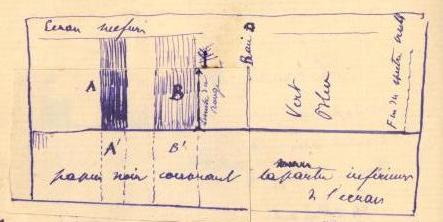 Ecran
A
B
limite du rouge
Raie D
Vert
Bleu
Fin du spectre
A'
B'
papier noir couvrant la partie inférieure
de l'écran